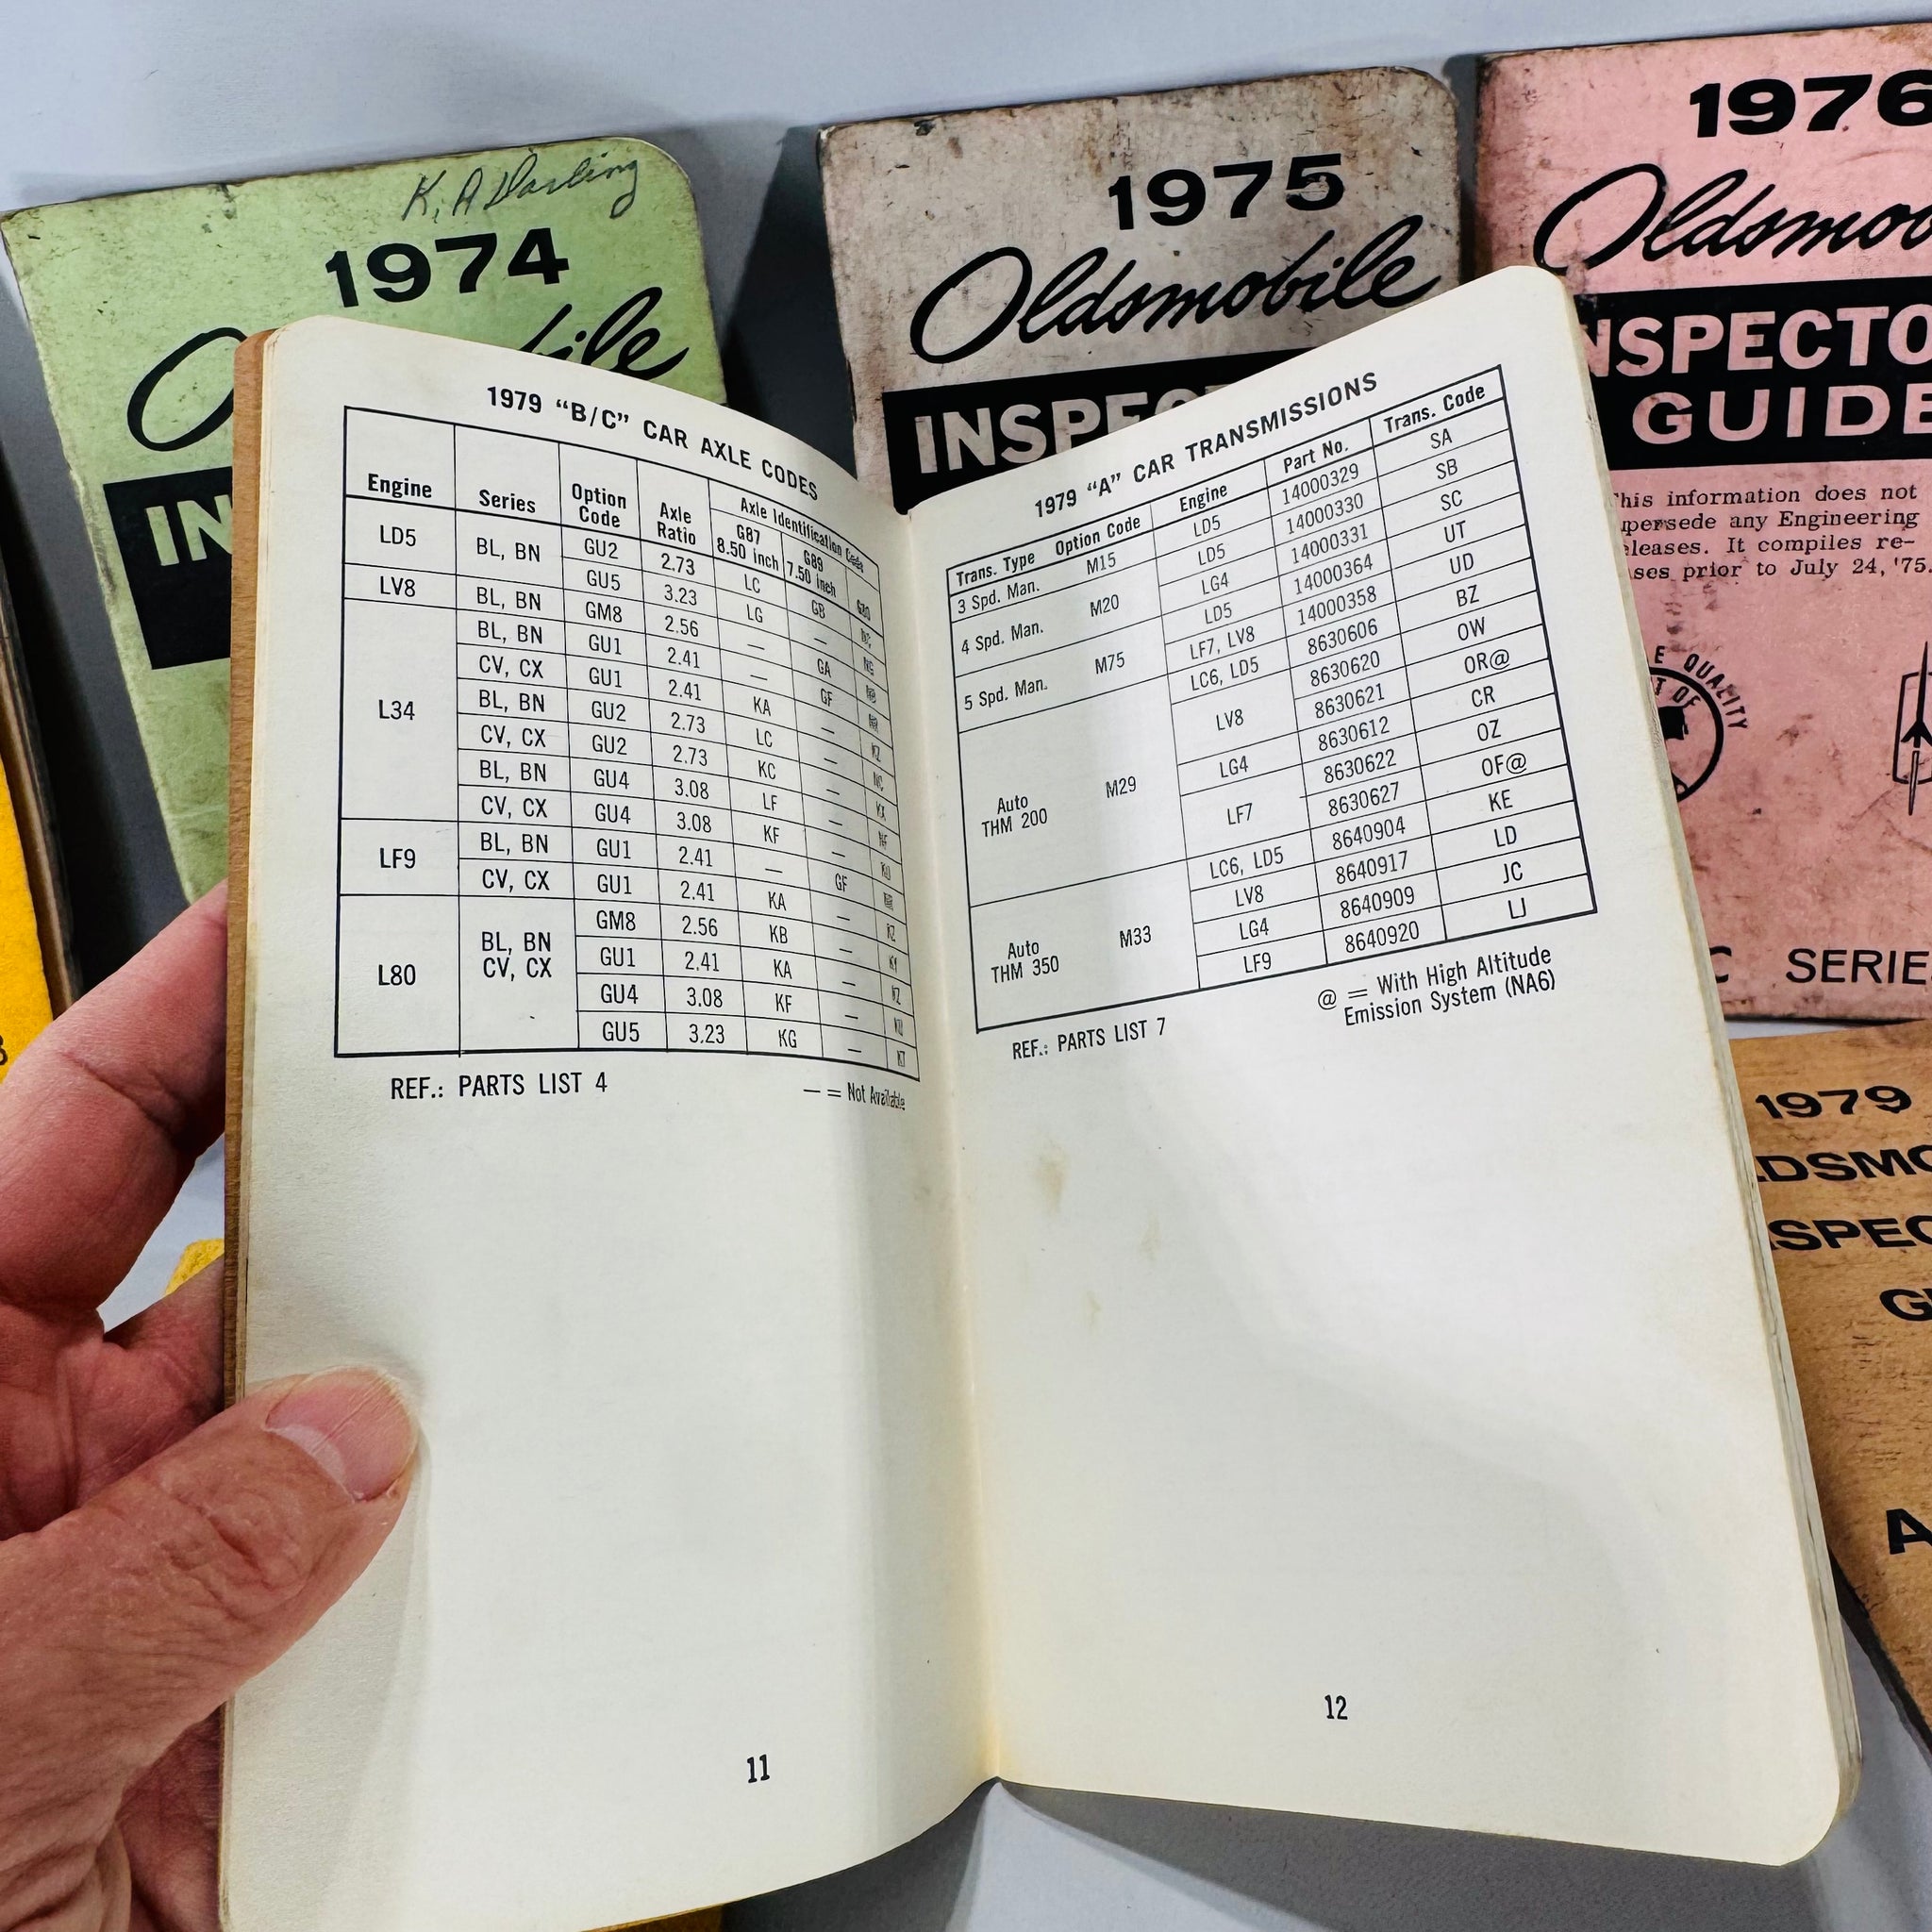 K. A Darling
1974
1975
Oldsmobile
1976
INSPECTO
GUIDE
This information does not
upersede any Engineering
eleases. It compiles re-
ses prior to July 24, '75.
E QUALITY
T OF
C SERIE
1979
LDSMO
SPEC
G
A
1979 "B/C" CAR AXLE CODES
Engine Series Option Code Axle Ratio Axle Identification Code
G87 8.50 inch G89 7.50 inch G80
LD5 BL, BN GU2 2.73 LC GB
GU5 3.23 LG —
LV8 BL, BN GM8 2.56 — GA
L34 BL, BN GU1 2.41 — GF
CV, CX GU1 2.41 KA —
BL, BN GU2 2.73 LC —
CV, CX GU2 2.73 KC —
BL, BN GU4 3.08 LF —
CV, CX GU4 3.08 KF —
LF9 BL, BN GU1 2.41 — GF
CV, CX GU1 2.41 KA —
L80 BL, BN CV, CX GM8 2.56 KB —
GU1 2.41 KA —
GU4 3.08 KF —
GU5 3.23 KG —
REF.: PARTS LIST 4
— = Not Available
11
1979 "A" CAR TRANSMISSIONS
Trans. Type Option Code Engine Part No. Trans. Code
3 Spd. Man. M15 LD5 14000329 SA
4 Spd. Man. M20 LD5 14000330 SB
LG4 14000331 SC
5 Spd. Man. M75 LD5 14000364 UT
LF7, LV8 14000358 UD
Auto THM 200 M29 LC6, LD5 8630606 BZ
LV8 8630620 OW
8630621 OR@
LG4 8630612 CR
LF7 8630622 OZ
8630627 OF@
Auto THM 350 M33 LC6, LD5 8640904 KE
LV8 8640917 LD
LG4 8640909 JC
LF9 8640920 LJ
@ = With High Altitude
Emission System (NA6)
REF.: PARTS LIST 7
12